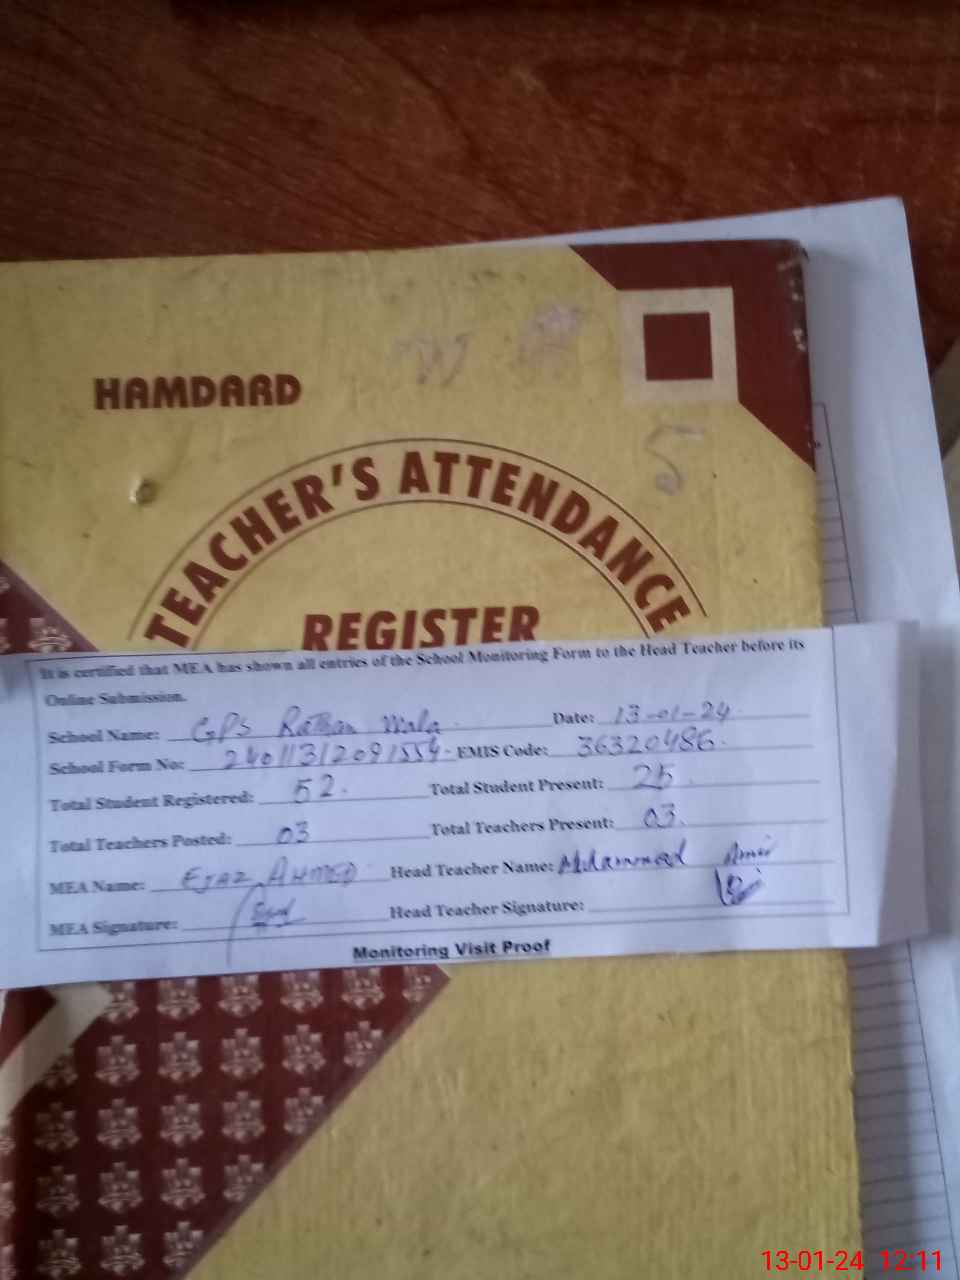 HAMDARD
W
5
TEACHER'S ATTENDANCE
REGISTER
It is certified that MEA has shown all entries of the School Monitoring Form to the Head Teacher before its
Online Submission.
School Name: GPS Rathan Wala Date: 13-01-24
School Form No: 24011312091554 EMIS Code: 36320486
Total Student Registered: 52. Total Student Present: 25
Total Teachers Posted: 03 Total Teachers Present: 03.
MEA Name: EJAZ AHMED Head Teacher Name: Muhammad Amir
MEA Signature: Head Teacher Signature:
Monitoring Visit Proof
13-01-24 12:11